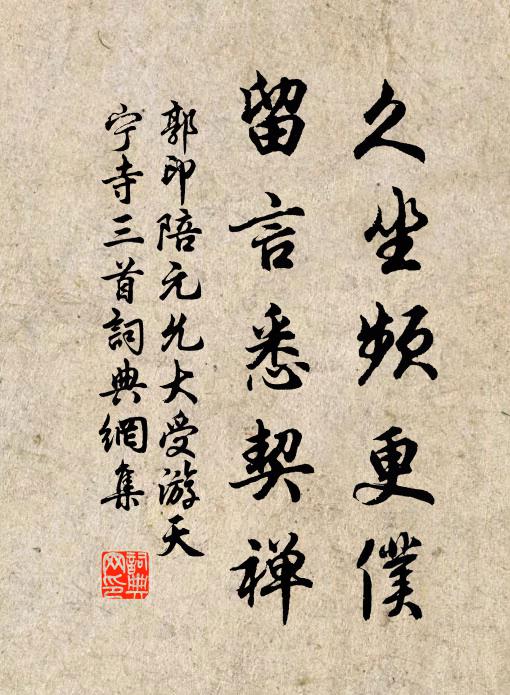 久坐频更僕
留言悉契禅
郭印陪元允大受游天
宁寺三首詞典網集
詞典网印